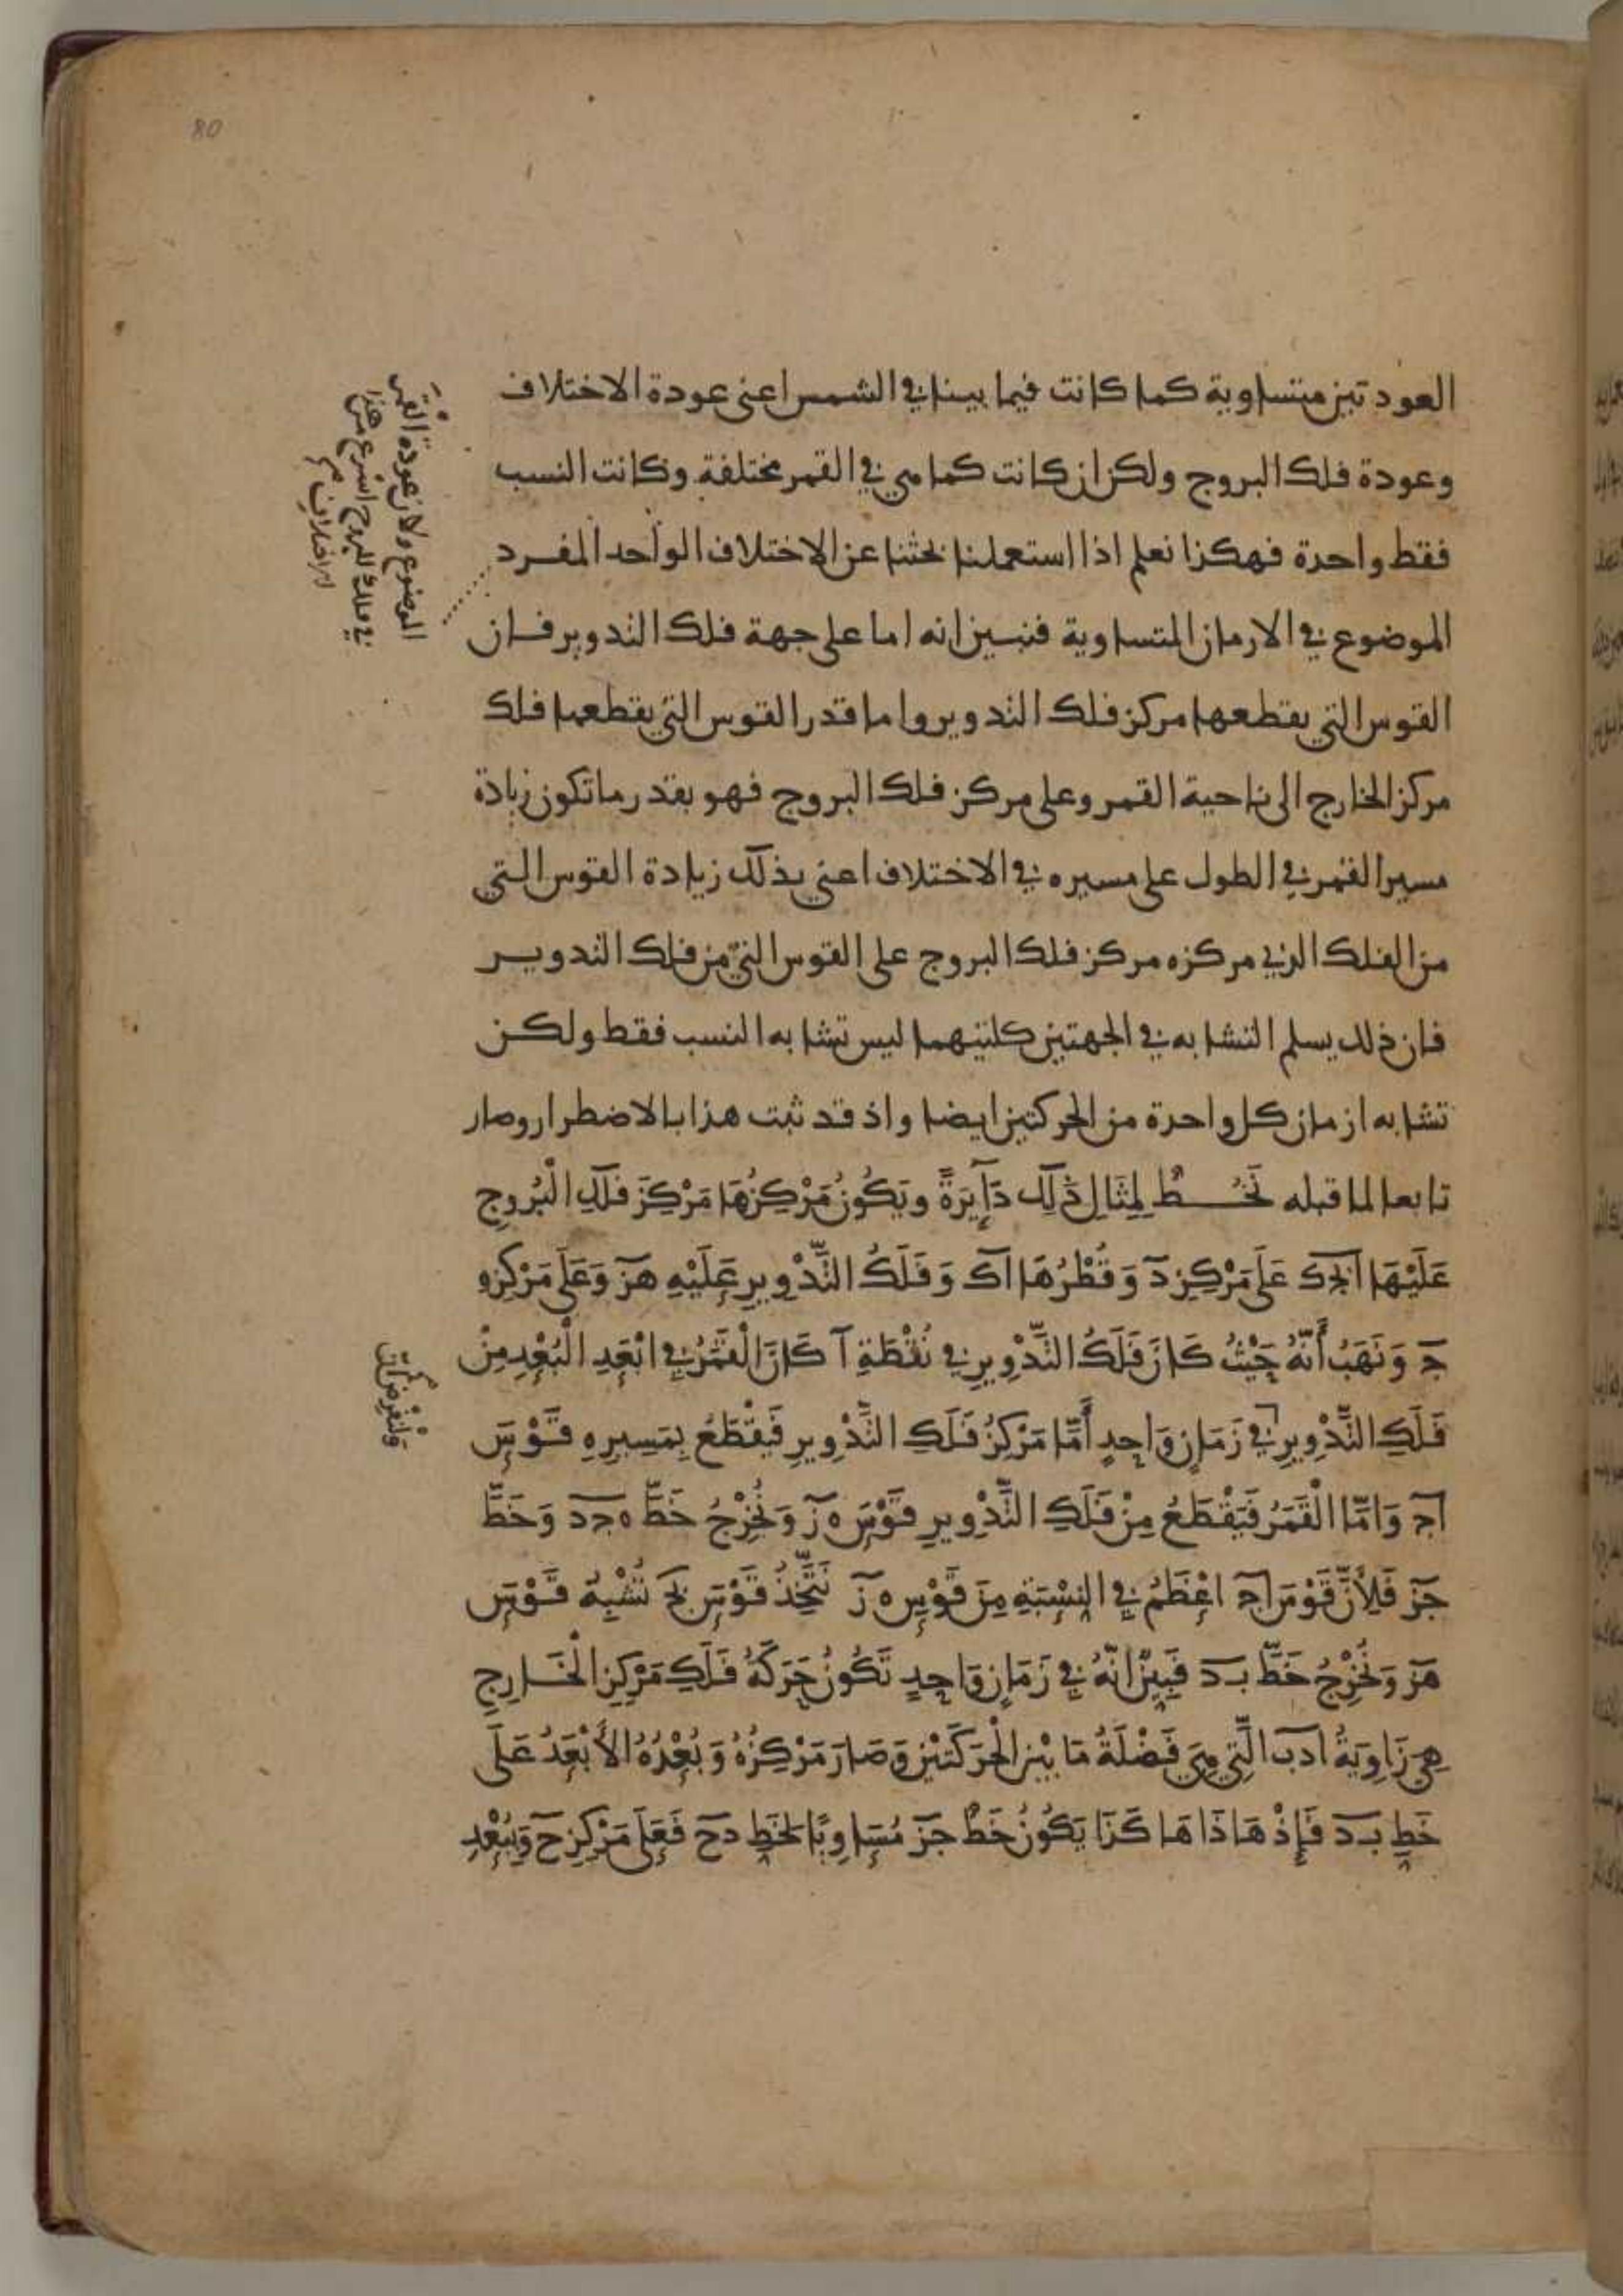 80
العودتين متساوية كما كانت فيما بينا في الشمس اعني عودة الاختلاف
وعودة فلك البروج ولكن ان كانت كما هي في القمر مختلفة وكانت النسب
فقط واحدة فهكذا نعلم اذا استعملنا بحثنا عن الاختلاف الواحد المفرد
الموضوع في الازمان المتساوية فنبين انه اما على جهة فلك التدوير فان
القوس التي يقطعها مركز فلك التدوير واما قدر القوس التي يقطعها فلك
مركز الخارج الى ناحية القمر وعلى مركز فلك البروج فهو بقدر ما تكون زيادة
مسير القمر في الطول على مسيره في الاختلاف اعني بذلك زيادة القوس التي
من الفلك الذي مركزه مركز فلك البروج على القوس التي من فلك التدويــر
فان ذلك يسلم التشابه في الجهتين كلتيهما ليس تشابه النسب فقط ولكن
تشابه ازمان كل واحدة من الحركتين ايضا واذ قد ثبت هذا بالاضطرار وصار
تابعا لما قبله نَخُــطُّ لِمِثَالِ ذَلِكَ دَآيِرَةً ويَكُونُ مَرْكِزُهَا مَرْكِزَ فَلَكِ الْبُرُوجِ
عَلَيْهَا ابجك عَلَى مَرْكِزِ د وَقُطْرُهَا اك وَفَلَكُ التَّدْوِيرِ عَلَيْهِ هز وَعَلَى مَرْكِزِه
ج وَنَهَبُ أَنَّهُ حَيْثُ كَانَ فَلَكُ التَّدْوِيرِ في نُقْطَةِ آ كَانَ الْقَمَرُ في ابْعَدِ الْبُعْدِ مِنْ
فَلَكِ التَّدْوِيرِ في زَمَانٍ وَاحِدٍ أَمَّا مَرْكِزُ فَلَكِ التَّدْوِيرِ فَيَقْطَعُ بِمَسِيرِهِ قَــوْسَ
اج وَامَّا الْقَمَرُ فَيَقْطَعُ مِنْ فَلَكِ التَّدْوِيرِ قَوْسَ ه ز وَنُخْرِجُ خَطَّ ه ج د وَخَطَّ
جز فَلِأَنَّ قَوْسَ اج اعْظَمُ في النِسْبَةِ مِنْ قَوْسِ ه ز نَتَّخِذُ قَوْسَ بج تُشْبِهُ قَــوْسَ
هز وَنُخْرِجُ خَطَّ بد فَبَيِّنٌ انَّهُ في زَمَانٍ وَاحِدٍ تَكُونُ حَرَكَةُ فَلَكِ مَرْكِزِ الْخَــارِجِ
هِيَ زَاوِيَةُ ادب الَّتِي هِيَ فَضْلَةُ مَا بَيْنَ الْحَرَكَتَيْنِ وَصَارَ مَرْكِزُهُ وَبُعْدُهُ الأَبْعَدُ عَلَى
خَطِ بد فَإِذْ هَاذَا هَا كَذَا يَكُونُ خَطُّ جز مُسَاوِيًا لخَطِ دح فَعَلَى مَرْكِزِ ح وَبِبُعْدِ
الموضوع ولان عودة القمر
في فلك البروج اسرع من هذا
وَلْنَفْرِضْ انّ